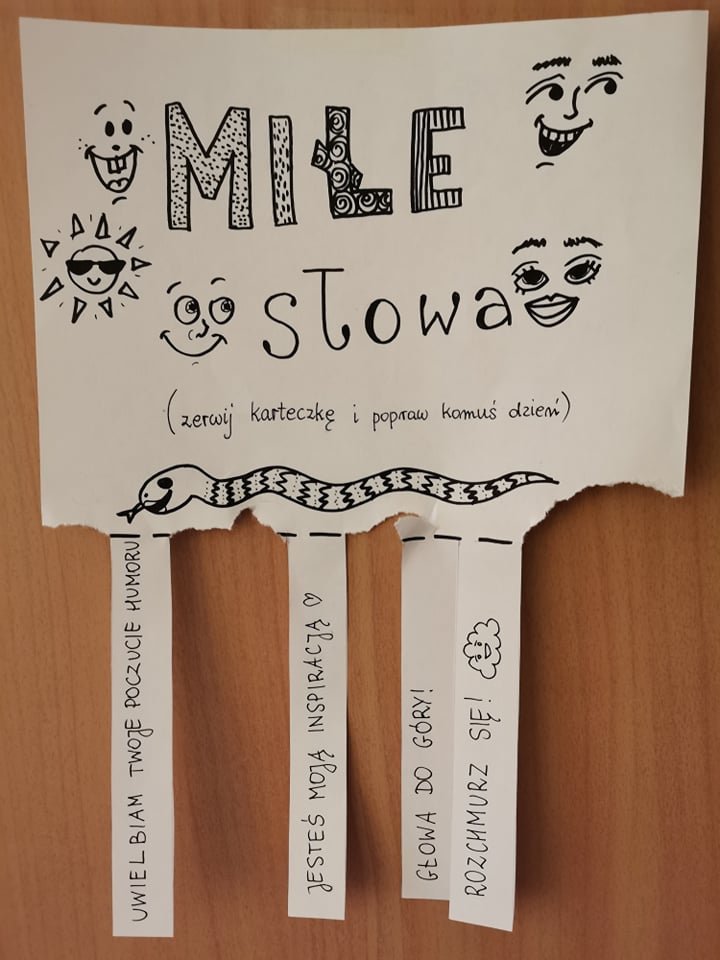 MIŁE
słowa
(zerwij karteczkę i popraw komuś dzień)
UWIELBIAM TWOJE POCZUCIE HUMORU
JESTEŚ MOJĄ INSPIRACJĄ ♡
GŁOWA DO GÓRY!
ROZCHMURZ SIĘ!